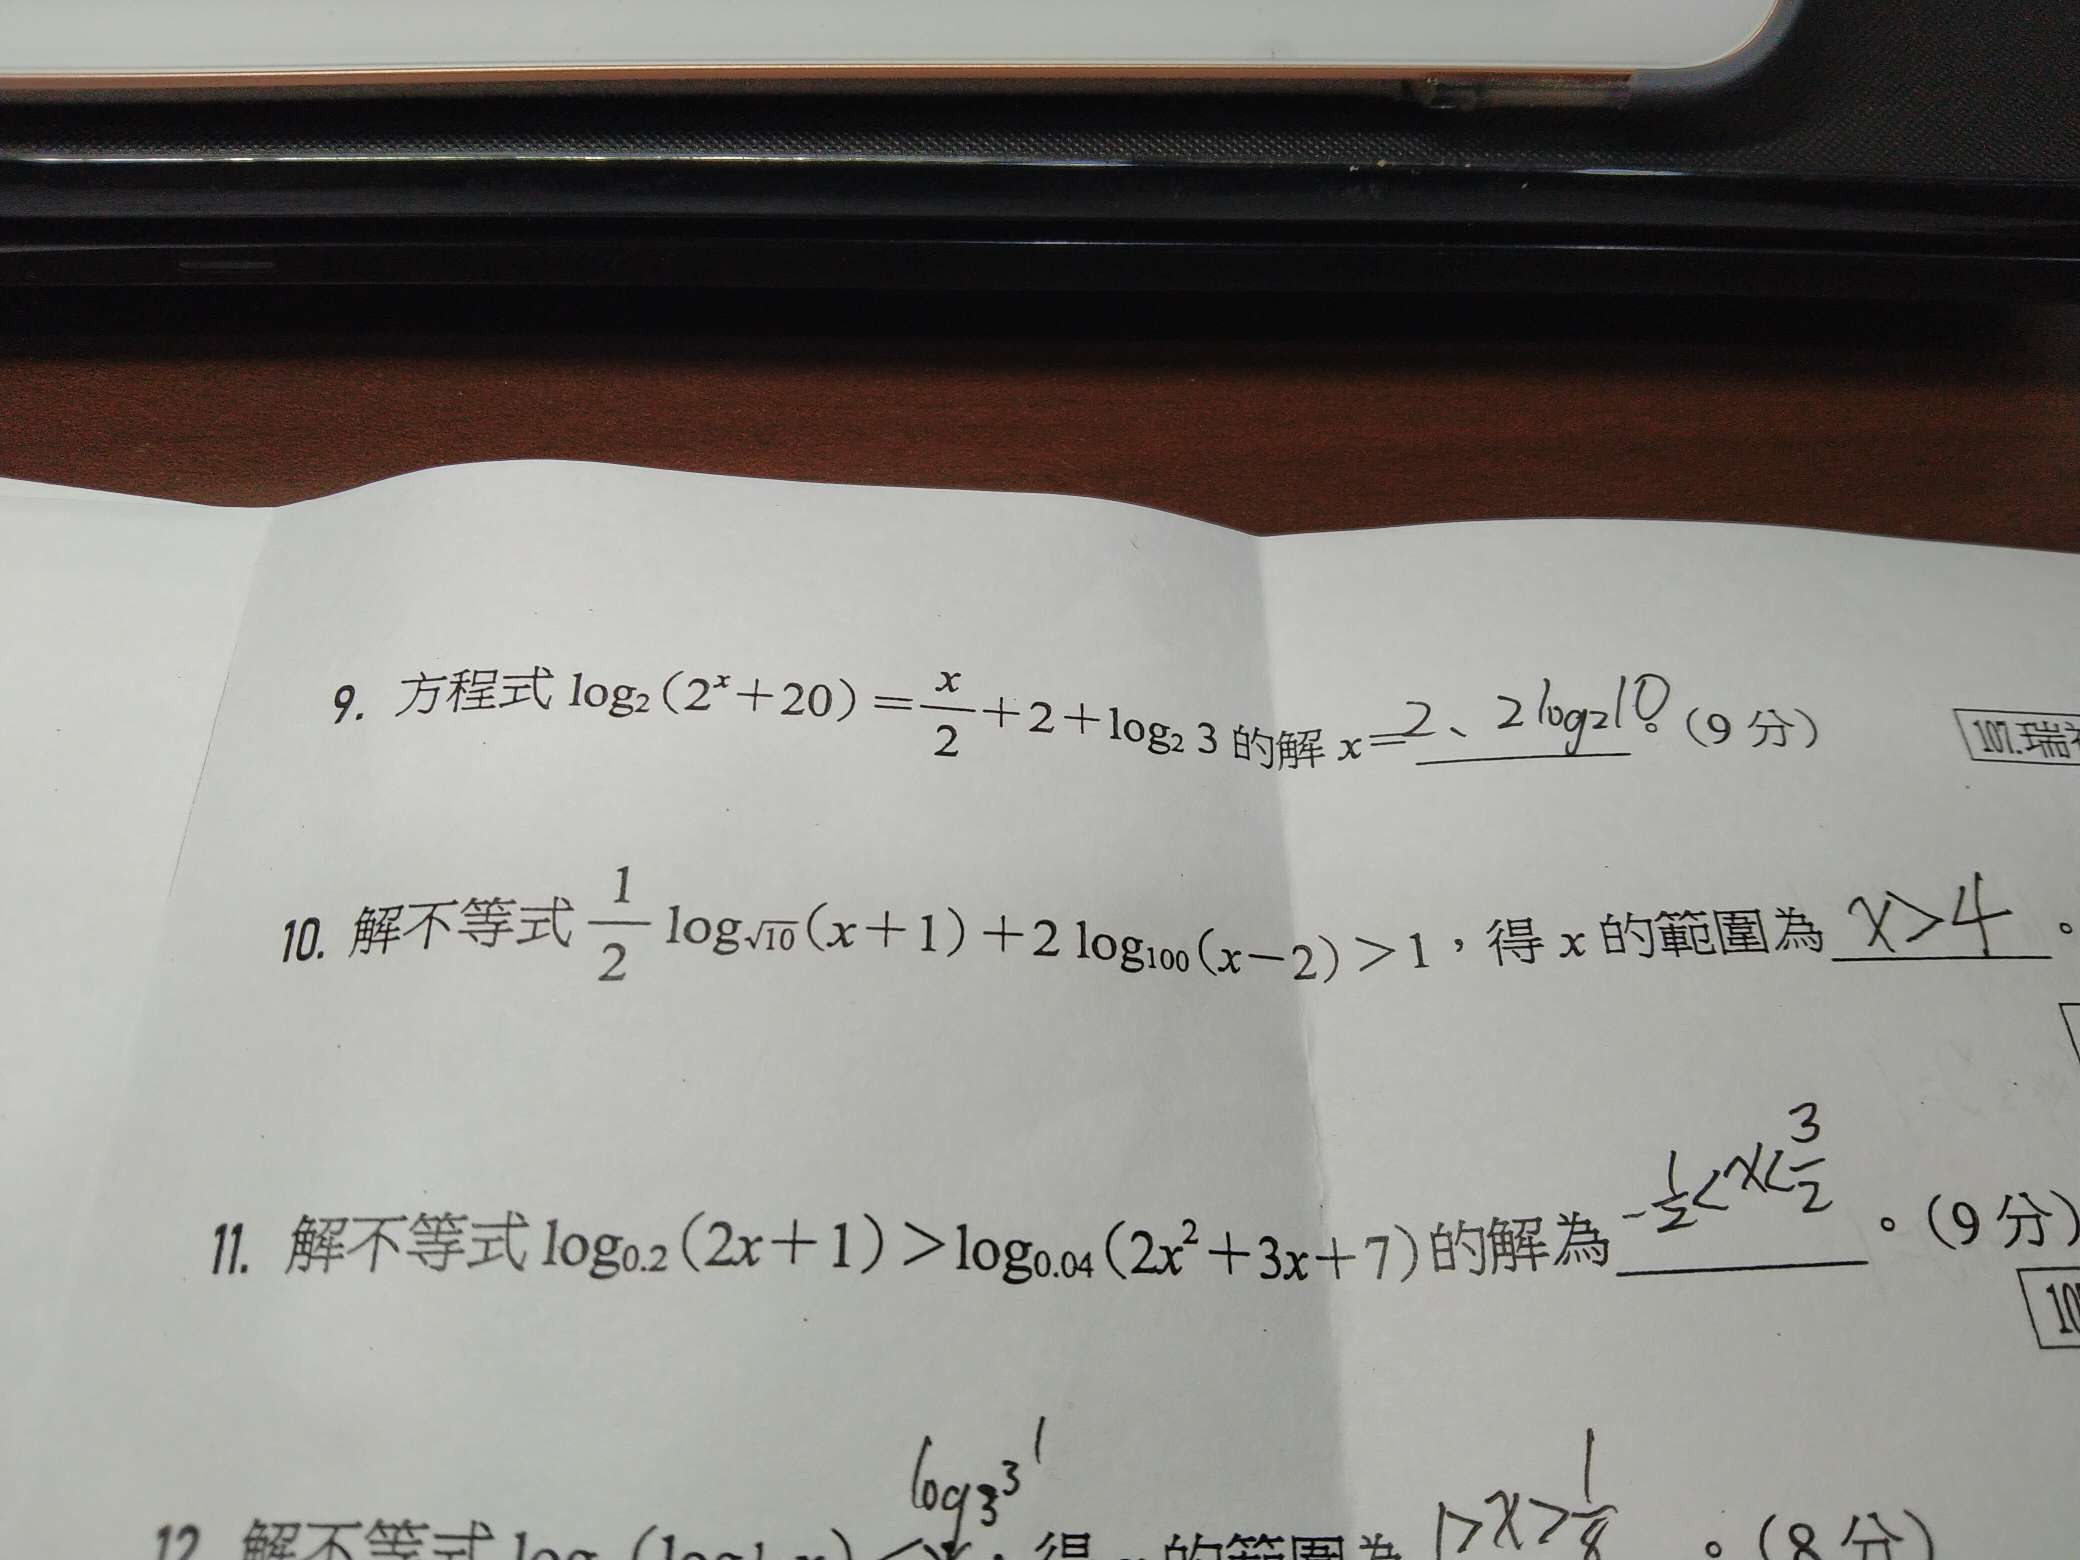 9. 方程式 log₂(2ˣ+20)=x/2+2+log₂3 的解 x=2、2log₂10。(9 分)
107.瑞
10. 解不等式 1/2 log√10(x+1)+2 log₁₀₀(x−2)>1,得 x 的範圍為 x>4。
11. 解不等式 log₀.₂(2x+1)>log₀.₀₄(2x²+3x+7)的解為 -1/2<x<3/2。(9 分)
10
log₃3 1
12. 解不等式 log (log x)< ,得 x 的範圍為 1>x>1/8。(8 分)